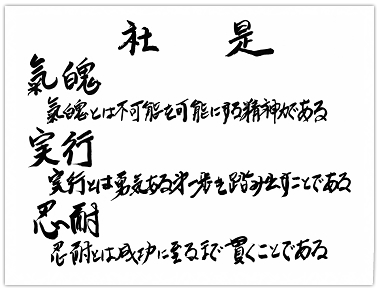 社是
氣魄
氣魄とは不可能を可能にする精神力である
実行
実行とは勇気ある第一歩を踏み出すことである
忍耐
忍耐とは成功に至るまで貫くことである